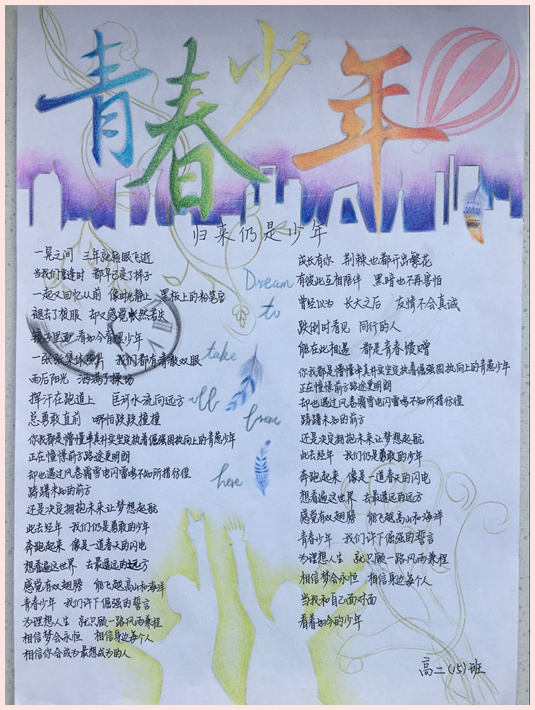 青春少年
归来仍是少年
一晃之间 三年就轻眼飞逝
当我们重逢时 都早已变了样子
一起久回忆以前 像时光静止 黑板上的粉笔字
褪去了校服 却又感觉恍然若失
镜子里面 看如今有过少年
一张张集体照片 我们都有着散双眼
雨后阳光 洒满了操场
挥汗在跑道上 巨河水流向远方
总勇敢直前 哪怕跌跌撞撞
你我都是懵懂率真朴实坚定执着倔强固执向上的青葱少年
正在憧憬前方路途更明朗
却也遇过风卷霜雪电闪雷鸣不知所措彷徨
踌躇未知的前方
还是决定拥抱未来让梦想起航
此去经年 我们仍是勇敢的少年
奔跑起来 像是一道春天的闪电
想看遍这世界 去最遥远的远方
感觉有双翅膀 能飞越高山和海洋
青春少年 我们许下倔强的誓言
为理想人生 就只顾一路风雨兼程
相信梦会永恒 相信身边每个人
相信你会成为最想成为的人
Dream
to
take
all
from
here
成长有你 荆棘也都开出繁花
有彼此互相陪伴 黑暗也不再害怕
曾经以为 长大之后 友情不会真诚
跌倒时看见 同行的人
能在此相遇 都是青春馈赠
你我都是懵懂率真朴实坚定执着倔强固执向上的青葱少年
正在憧憬前方路途更明朗
却也遇过风卷霜雪电闪雷鸣不知所措彷徨
踌躇未知的前方
还是决定拥抱未来让梦想起航
此去经年 我们仍是勇敢的少年
奔跑起来 像是一道春天的闪电
想看遍这世界 去最遥远的远方
感觉有双翅膀 能飞越高山和海洋
青春少年 我们许下倔强的誓言
为理想人生 就只顾一路风雨兼程
相信梦会永恒 相信身边每个人
当我和自己面对面
看着如今的少年
高二(15)班